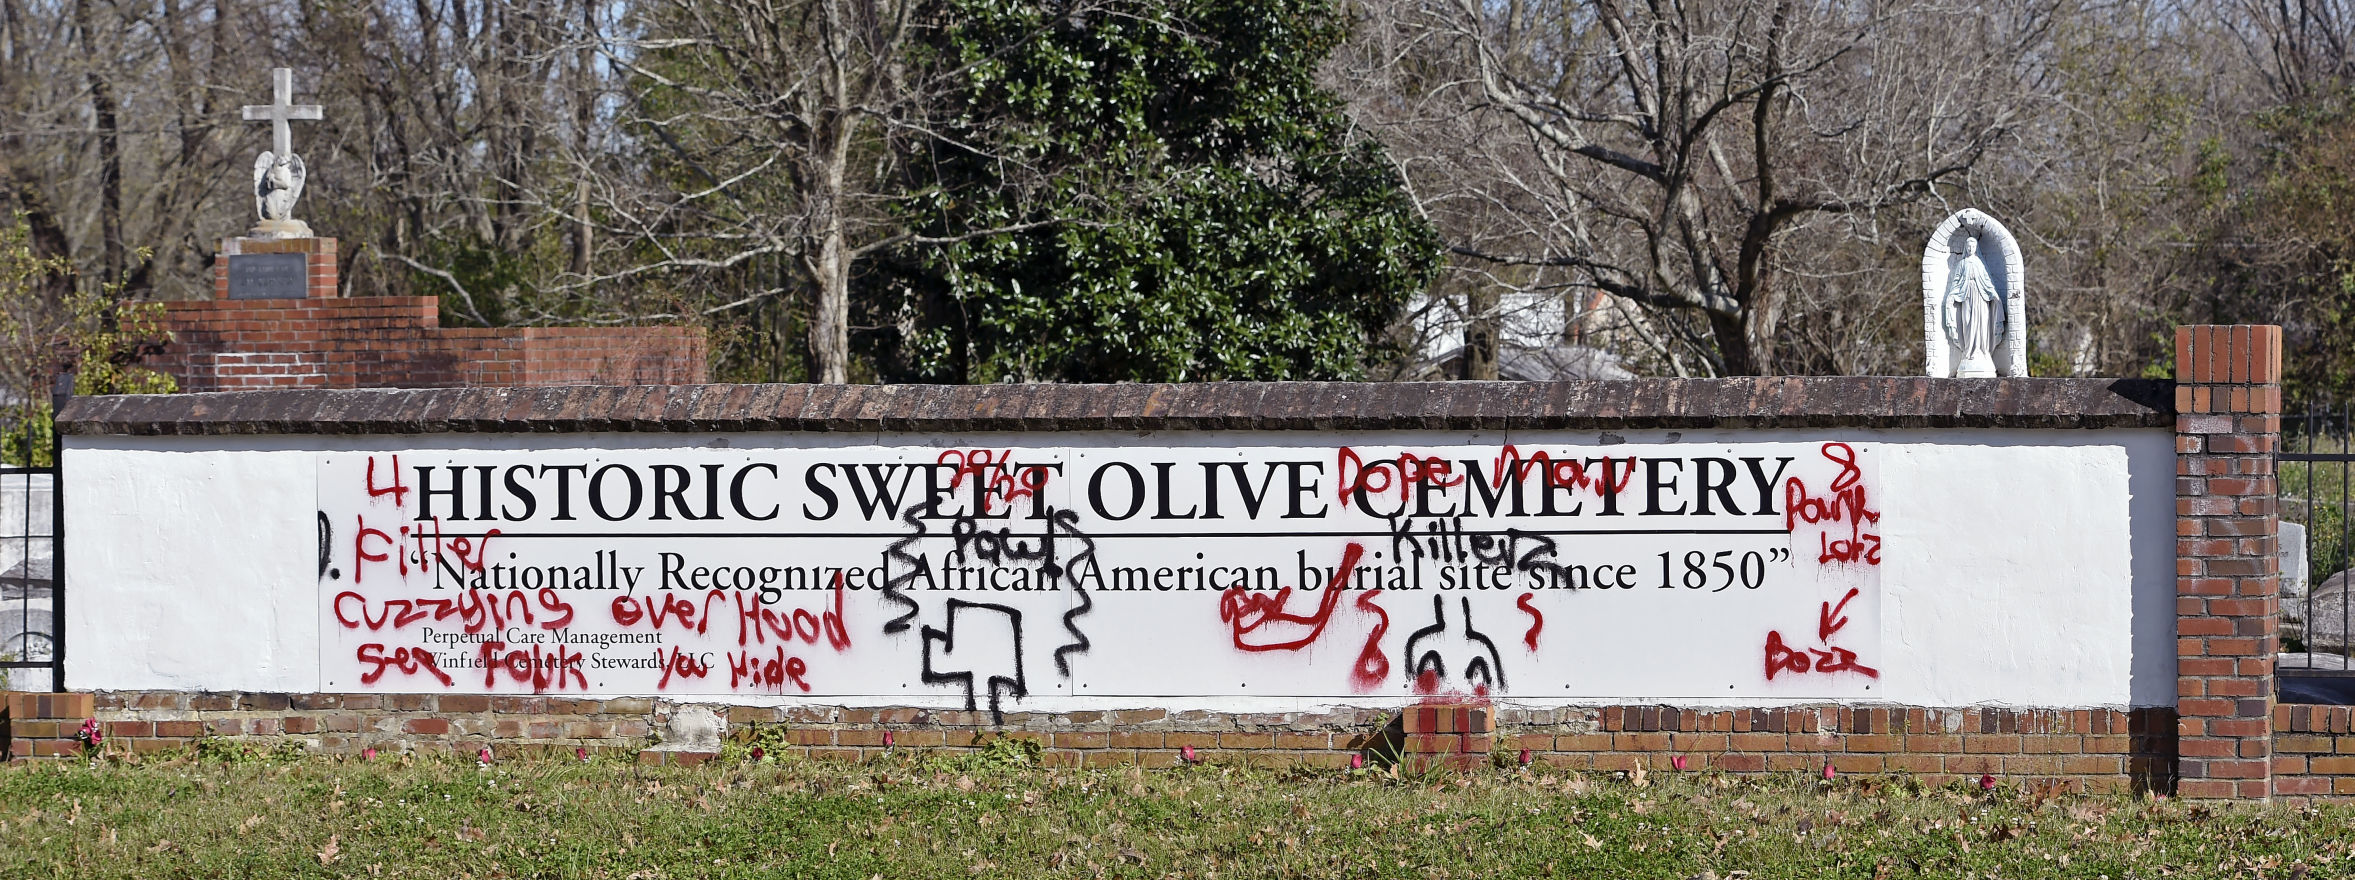 HISTORIC SWEET OLIVE CEMETERY
"Nationally Recognized African American burial site since 1850"
Perpetual Care Management
Winfield Cemetery Stewards, LLC
4
Killer
Cuzzying over Hood
Sex Folk Hide
Paws
Dope Man
Killerz
8